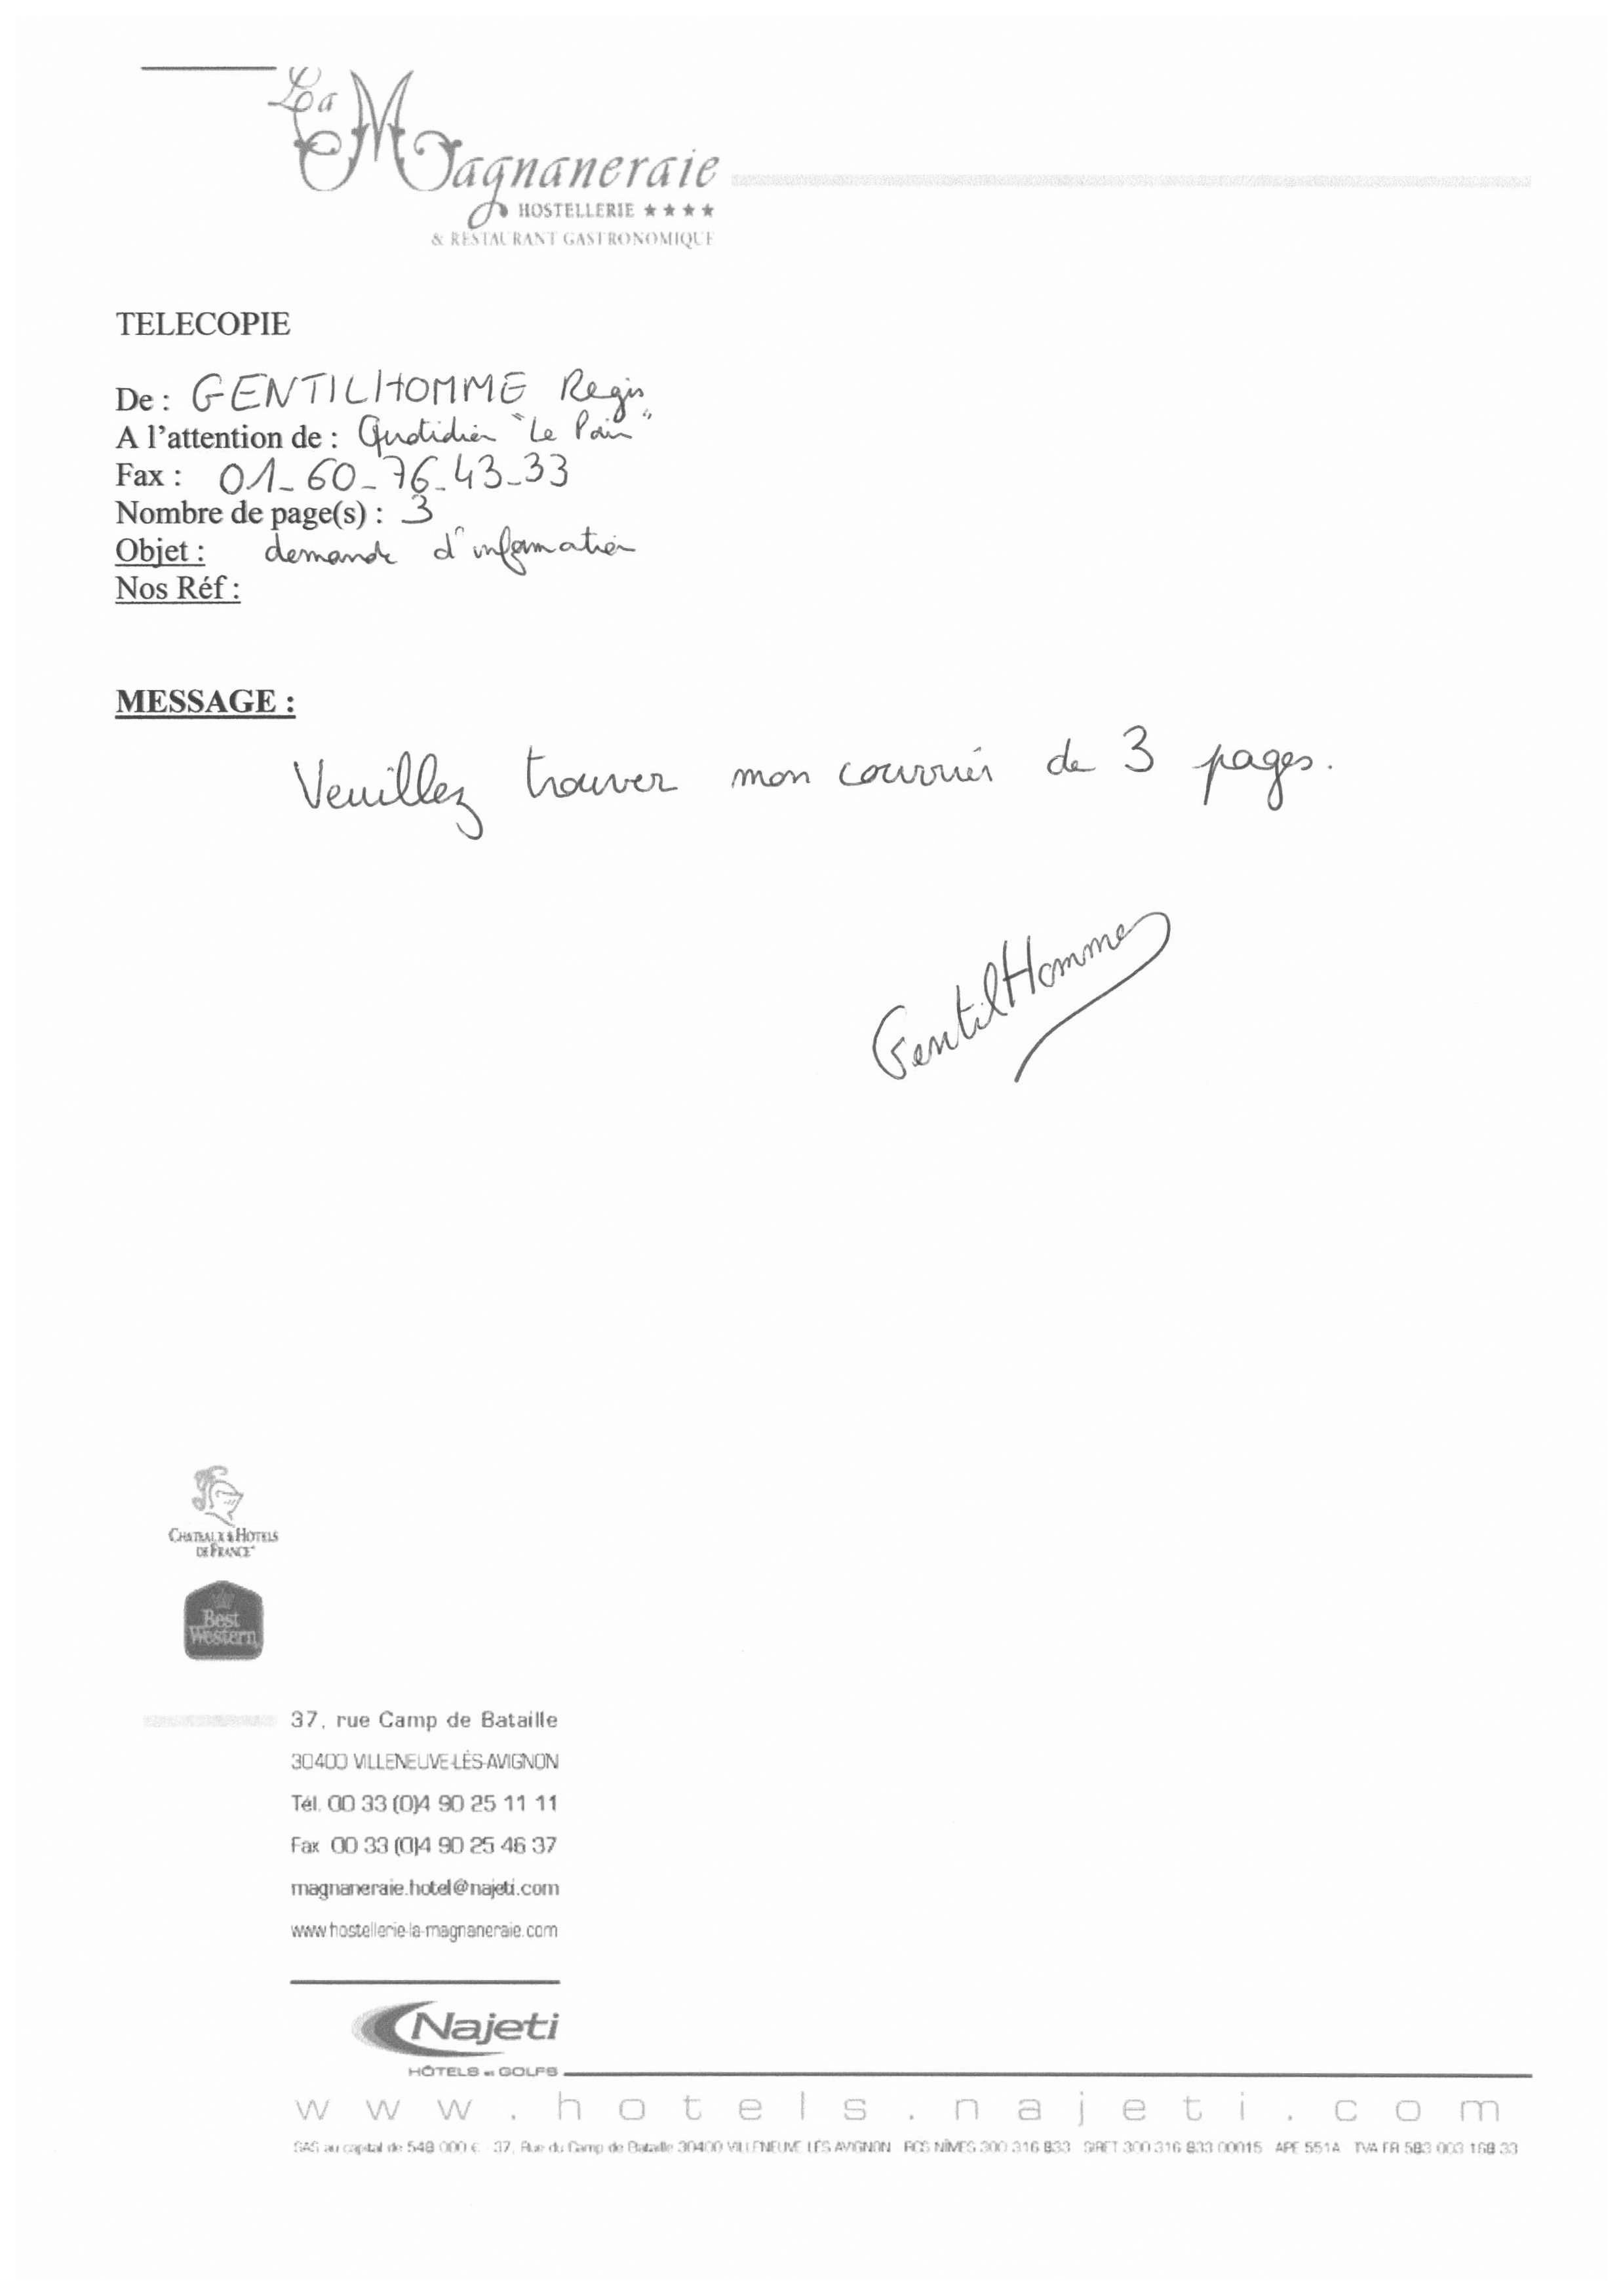 La Magnaneraie
HOSTELLERIE ★★★★
& RESTAURANT GASTRONOMIQUE
TELECOPIE
De : GENTILHOMME Regis
A l'attention de : Quotidien "Le Pain"
Fax : 01_60_76_43_33
Nombre de page(s) : 3
Objet : demande d'information
Nos Réf :
MESSAGE :
Veuillez trouver mon courrier de 3 pages.
GentilHomme
CHATEAUX & HOTELS
DE FRANCE
Best
Western
37, rue Camp de Bataille
30400 VILLENEUVE-LÈS-AVIGNON
Tél. 00 33 (0)4 90 25 11 11
Fax 00 33 (0)4 90 25 46 37
magnaneraie.hotel@najeti.com
www.hostellerie-la-magnaneraie.com
Najeti
HÔTELS et GOLFS
www.hotels.najeti.com
SAS au capital de 548 000 € 37, Rue du Camp de Bataille 30400 VILLENEUVE LÈS AVIGNON RCS NÎMES 300 316 833 SIRET 300 316 833 00015 APE 551A TVA FR 583 003 168 33